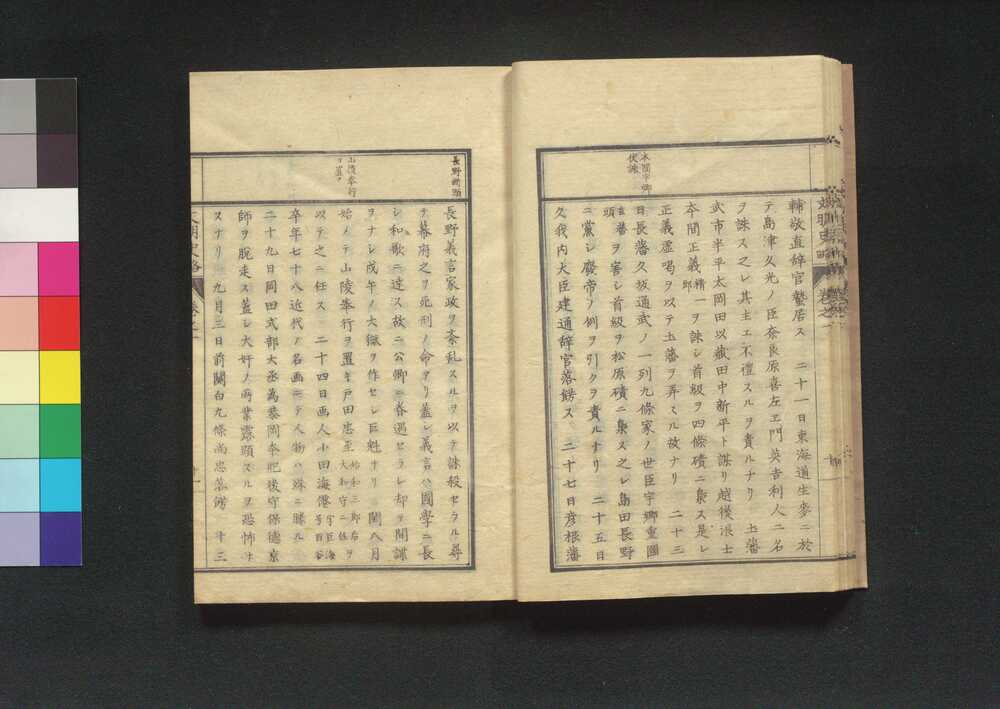 輔敬直辞官蟄居ス 二十一日東海道生麥ニ於
テ島津久光ノ臣奈良原喜左エ門英吉利人二名
ヲ誅ス之レ其主エ不禮スルヲ責ルナリ 土藩
武市半平太岡田以蔵田中新平ト謀リ越後浪士
本間正義精一郎ヲ誅シ首級ヲ四條磧ニ梟ス是レ
正義虚喝ヲ以テ土藩ヲ弄スル故ナリ 二十三
日長藩久坂通武ノ一列九條家ノ世臣宇郷重國
玄蕃頭ヲ害シ首級ヲ松原磧ニ梟ス之レ島田長野
ニ黨シ廢帝ノ例ヲ引クヲ責ルナリ 二十五日
久我内大臣建通辞官落餝ス 二十七日彦根藩
宇郷
伏誅
長野義言家政ヲ紊乱スルヲ以テ誅殺セラル尋
テ幕府之ヲ死刑ノ命アリ蓋シ義言ハ國學ニ長
シ和歌ニ達ス故ニ公卿ニ眷遇セラレ却テ間諜
ヲナシ戊午ノ大獄ヲ作セシ巨魁ナリ 閏八月
始メテ山陵奉行ヲ置キ戸田忠至始和三郎后ヲ大和守ニ任
以テ之ニ任ス 二十四日画人小田海僊字巨海号百谷
卒年七十八近代ノ名画ニテ人物ハ殊ニ勝ル
二十九日岡田式部大丞為恭岡本肥後守保徳京
師ヲ脱走ス蓋シ大奸ノ両業露顕スルヲ恐怖ナ
スナリ 九月三日前關白九條尚忠落餝 十三
長野斬頭
山陵奉行
ヲ置ク